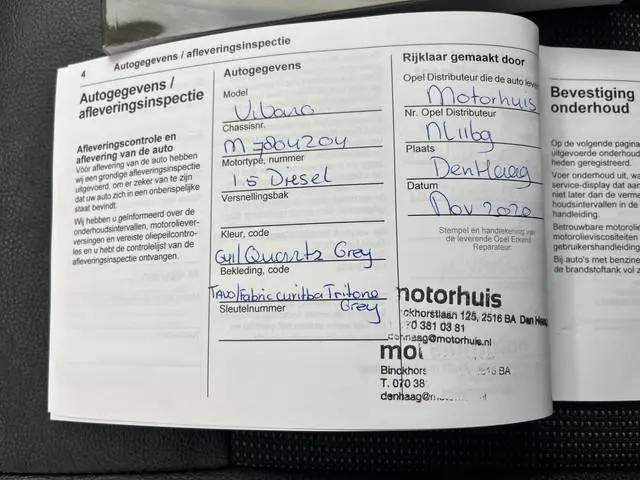 4 Autogegevens / afleveringsinspectie
Autogegevens /
afleveringsinspectie
Afleveringscontrole en
aflevering van de auto
Vóór aflevering van de auto hebben
wij een grondige afleveringsinspectie
uitgevoerd, om er zeker van te zijn
dat uw auto zich in een onberispelijke
staat bevindt.
Wij hebben u geïnformeerd over de
onderhoudsintervallen, motoroliever-
versingen en vereiste oliepeilcontro-
les en u hebt de controlelijst van de
afleveringsinspectie ontvangen.
Autogegevens
Model
Vivaro
Chassisnr.
M7804204
Motortype, nummer
1.5 Diesel
Versnellingsbak
Kleur, code
Quartz Grey
Bekleding, code
Fabric curitba Tritone
Grey
Sleutelnummer
Rijklaar gemaakt door
Opel Distributeur die de auto
Motorhuis
Nr. Opel Distributeur
NL116g
Plaats
Den Haag
Datum
Nov 2020
Stempel en handtekening van
de leverende Opel Erkend
Reparateur.
motorhuis
ckhorstlaan 125, 2516 BA Den Haag
70 381 03 81
dennaag@motorhuis.nl
mot
Binckhors 2516 BA
T. 070 38
denhaag@
Bevestiging
onderhoud
Op de volgende pagina
uitgevoerde onderhoud
heden geregistreerd.
Voer onderhoud uit, wa
service-display dat aan
niet later dan de verme
houdsintervallen in de
handleiding.
Betrouwbare motorolie
motorolieviscositeiten
gebruikershandleiding
Bij auto's met benzine
de brandstoftank vol z